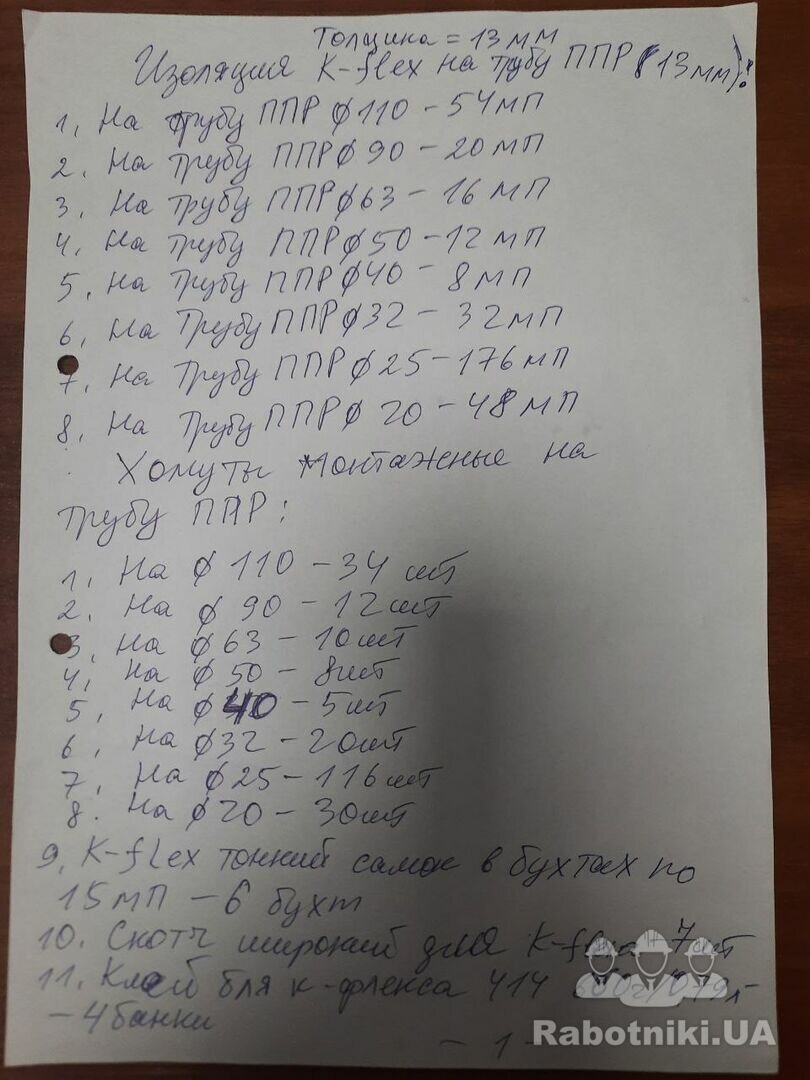 Толщина = 13 мм
Изоляция K-flex на трубу ППР (13мм):
1, На трубу ППР ϕ110 – 54мп
2. На трубу ППР ϕ 90 – 20 мп
3. На трубу ППР ϕ63 – 16 мп
4. На трубу ППР ϕ50 – 12 мп
5. На трубу ППР ϕ40 – 8 мп
6. На трубу ППР ϕ32 – 32мп
7. На трубу ППР ϕ 25 – 176 мп
8. На трубу ППР ϕ 20 – 48 мп
Хомуты монтажные на
трубу ППР:
1. На ϕ 110 – 34 шт
2. На ϕ 90 – 12 шт
3. На ϕ 63 – 10 шт
4, На ϕ 50 – 8шт
5, На ϕ 40 – 5 шт
6, На ϕ32 – 20шт
7. На ϕ25 – 116 шт
8. На ϕ20 – 30шт
9, K-flex тонкий самок в бухтах по
15 мп – 6 бухт
10. Скотч широкий для K-flexa 7 шт
11. Клей для к-флекса 414
– 4 банки
– 1 –
Rabotniki.UA